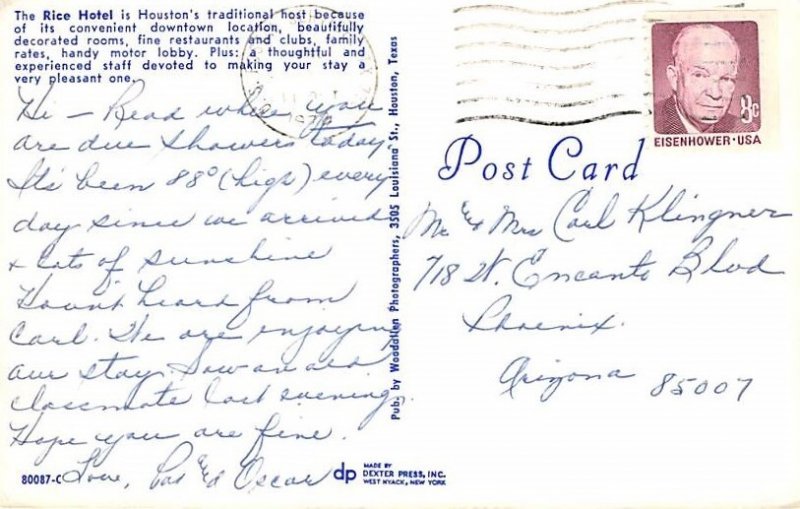 The Rice Hotel is Houston's traditional host because
of its convenient downtown location, beautifully
decorated rooms, fine restaurants and clubs, family
rates, handy motor lobby. Plus: a thoughtful and
experienced staff devoted to making your stay a
very pleasant one.
Hi - Read where you
are due showers today.
It's been 88° (high) every
day since we arrived
& lots of sunshine
Haven't heard from
Carl. We are enjoying
our stay. Saw an old
classmate last evening.
Hope you are fine.
Love, and Oscar
80087-C
Pub. by Woodallen Photographers, 3505 Louisiana St., Houston, Texas
dp
MADE BY
DEXTER PRESS, INC.
WEST NYACK, NEW YORK
8c
EISENHOWER·USA
Post Card
Mr & Mrs Carl Klingner
718 W. Encanto Blvd
Phoenix.
Arizona 85007